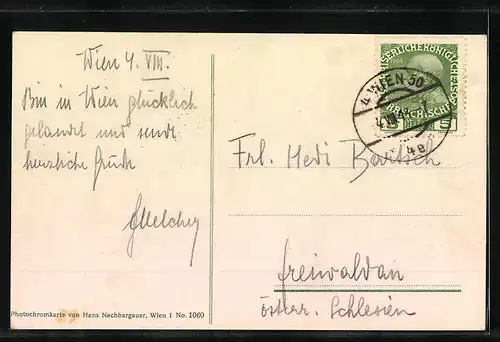 Wien 4. VIII.
Bin in Wien glücklich
gelandet und sende
herzliche Grüße
Photochromkarte von Hans Nachbargauer, Wien 1 No. 1060
KAISERLICHE KÖNIGLICHE
ÖSTERREICHISCHE POST
5
4 WIEN 50
4e
Frl. Hedi Bartsch
Freiwaldau
österr. Schlesien